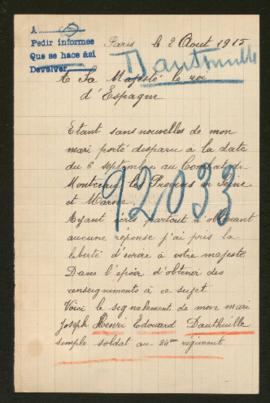 A
Pedir informes
Que se hace así
Devolver
Paris le 2 Aout 1915
Dauthuille
A Sa Majesté le roi
d'Espagne
Etant sans nouvelles de mon
mari porté disparu à la date
du 6 septembre au Combat de
Montceaux les Provins en Seine
et Marne.
92033
Ayant écrit partout et n'ayant
aucune réponse j'ai pris la
liberté d'écrire à votre majesté
Dans l'espoir d'obtenir des
renseignements à ce sujet.
Voici le signalement de mon mari
Joseph Henri Edouard Dauthuille
simple soldat au régiment